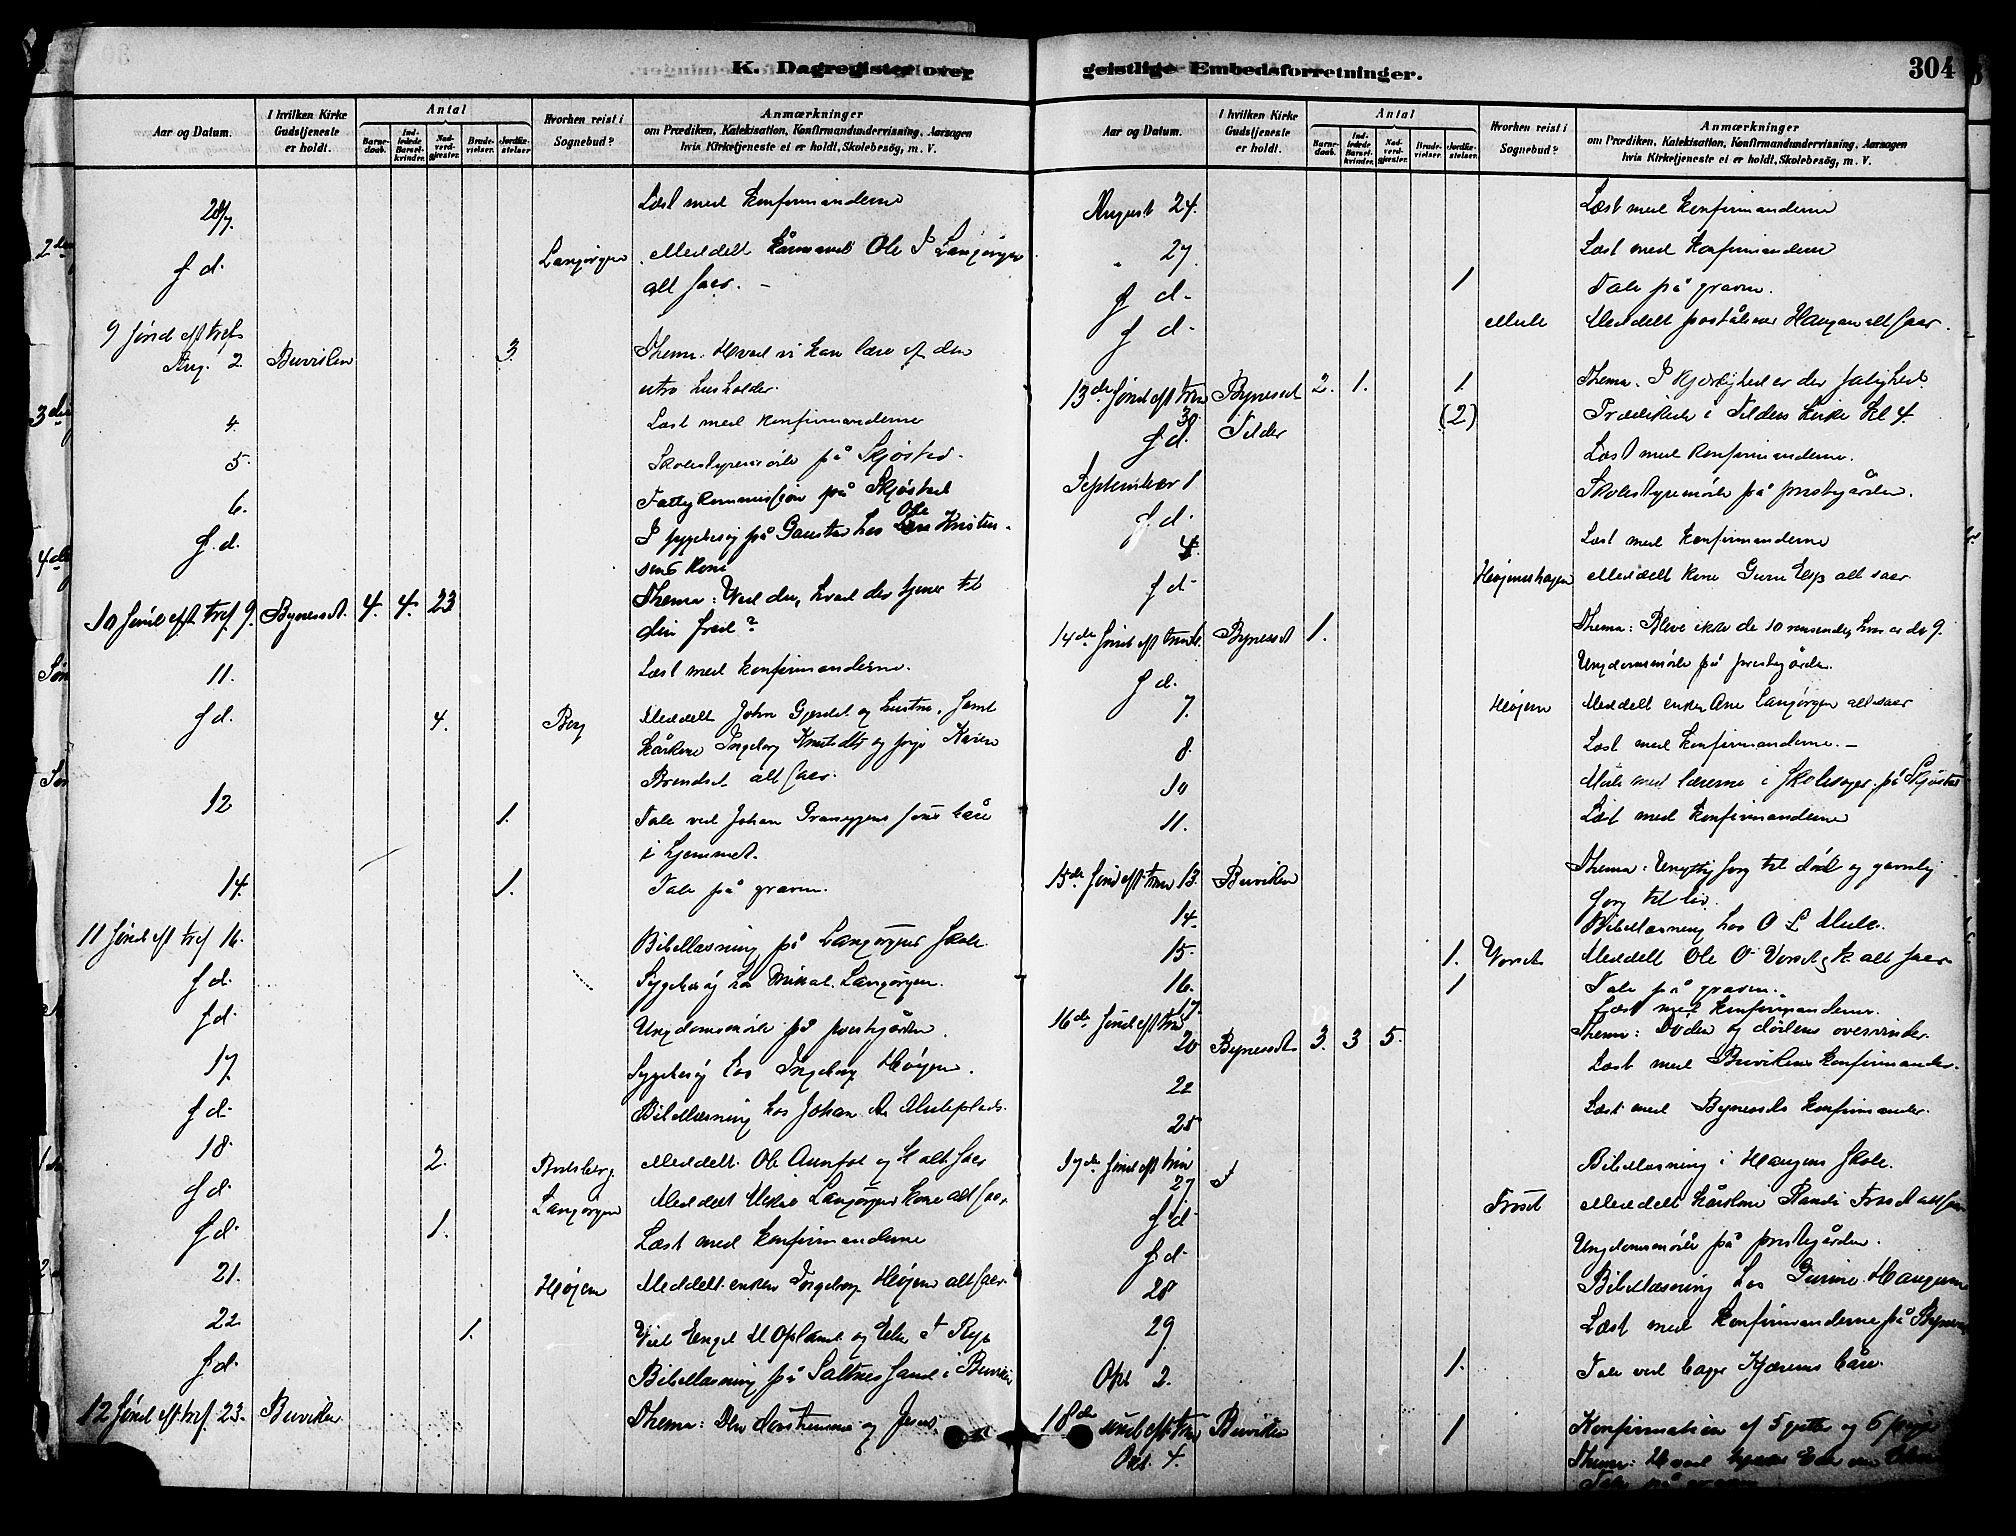 K. Dagregister over
Aar og Datum. I hvilken Kirke Gudstjeneste er holdt. Antal Barnedaab. Indledede Barselkvinder. Nadverdgjester. Brudevielser. Jordfæstelser Hvorhen reist i Sognebud? Anmærkninger om Prædiken, Katekisation, Konfirmandundervisning, Aarsagen hvis Kirketjeneste ei er holdt, Skolebesög, m. V.
28/7. Læst med Konfirmanderne
s. d. Langørgen Meddelt Kårmand Ole J Langørgen
alt saer. –
9 Sønd eft tref
Aug. 2. Buviken 3. Thema: Hvad vi kan lære af den
utro husholder.
4. Læst med Konfirmanderne
5. Skolestyremöde på Skjøstad.
6. Fattigkommission på Skjøstad
s. d. I sygebesøg på Gaustad hos Ole Kristen-
sens Kone
10 Sönd eft tref. 9. Bynesset. 4. 4. 23 Thema: Ved du, hvad der tjener til
din fred?
11. Læst med Konfirmanderne.
s. d. 4. Berg Meddelt John Gjendal og hustru, samt
Kårkone Ingeborg og pige Karen
alt saer.
12 1. Tale ved Johan søns båre
i hjemmet.
14. 1. Tale på graven.
11 Sønd eft tref 16. Bibellæsning på Langørgens Skole
s. d. Sygebesøg hos Mikal Langørgen.
s. d. Ungdomsmøde på prestegården.
17. Sygebesøg hos Ingeborg Høyen.
s. d. Bibellæsning hos Johan A. Muleplads.
18. 2. Meddelt Ole og K alt saer
s. d. Langørgen Meddelt Mikal Langørgens Kone alt saer
s. d. 1. Læst med Konfirmanderne
21. Høyen Meddelt enken Ingeborg Høyen alt saer
22. 1. Viet Engel M Opland og J Rye
s. d. Bibellæsning på Saltnessand i Buviken
12 Sønd eft tref. 23. Buviken Thema: Den døvstumme og Jesus.
geistlige Embedsforretninger. 304
Aar og Datum. I hvilken Kirke Gudstjeneste er holdt. Antal Barnedaab. Indledede Barselkvinder. Nadverdgjester. Brudevielser. Jordfæstelser Hvorhen reist i Sognebud? Anmærkninger om Prædiken, Katekisation, Konfirmandundervisning, Aarsagen hvis Kirketjeneste ei er holdt, Skolebesög, m. V.
August 24. Læst med Konfirmanderne
„ 27. Læst med Konfirmanderne
s. d. 1 Tale på graven.
s. d. Mule Meddelt Haugan alt saer.
13de Sønd eft trin 30 Bynesset 2. 1. 1. Thema. I Kjærlighed er der salighed.
s. d. Tilder (2) Prædikede i Tilders Kirke Kl 4.
September 1 Læst med Konfirmanderne.
s. d. Skolestyremöde på prestegården.
4. Læst med Konfirmanderne
s. d. Høyemshagen Meddelt Kone alt saer
14de Sønd eft trinit. Bynesset 1. Thema: Bleve ikke de 10 rensede, hvor er de 9.
s. d. Ungdomsmöde på prestegården.
7. Høyem Meddelt enken Ane Langørgen alt saer
8. Læst med Konfirmanderne. –
10 Møde med lærerne i skolesager på Skjøstad
11. Læst med Konfirmanderne
15de Sønd eft trin 13. Buviken Thema: Unyttig sorg til død og gavnlig
sorg til liv.
14. Bibellæsning hos O L Mule.
15. 1. Vorset Meddelt Ole O Vorset K alt saer
16. 1 Tale på graven.
17. Læst med Konfirmanderne.
16de Sønd eft trin 20 Bynesset 3. 3 5. Thema: Døden og dødens overvinder.
22 Læst med Buvikens Konfirmander.
25 Læst med Bynessets Konfirmander.
17de Sønd eft trin 27 Bibellæsning i Haugens Skole.
s. d. Froset Meddelt Kårkone Randi Froset alt saer
s. d. Ungdomsmöde på prestegården.
28 Bibellæsning hos Gurine
29. Læst med Konfirmanderne på Bynesset
Okt 2. 1. Tale ved Kjærems båre.
18de Sønd eft trin Okt. 4. Buviken 1 Konfirmation af 5 gutter og 6 piger
Thema: Hvad
Tale på graven